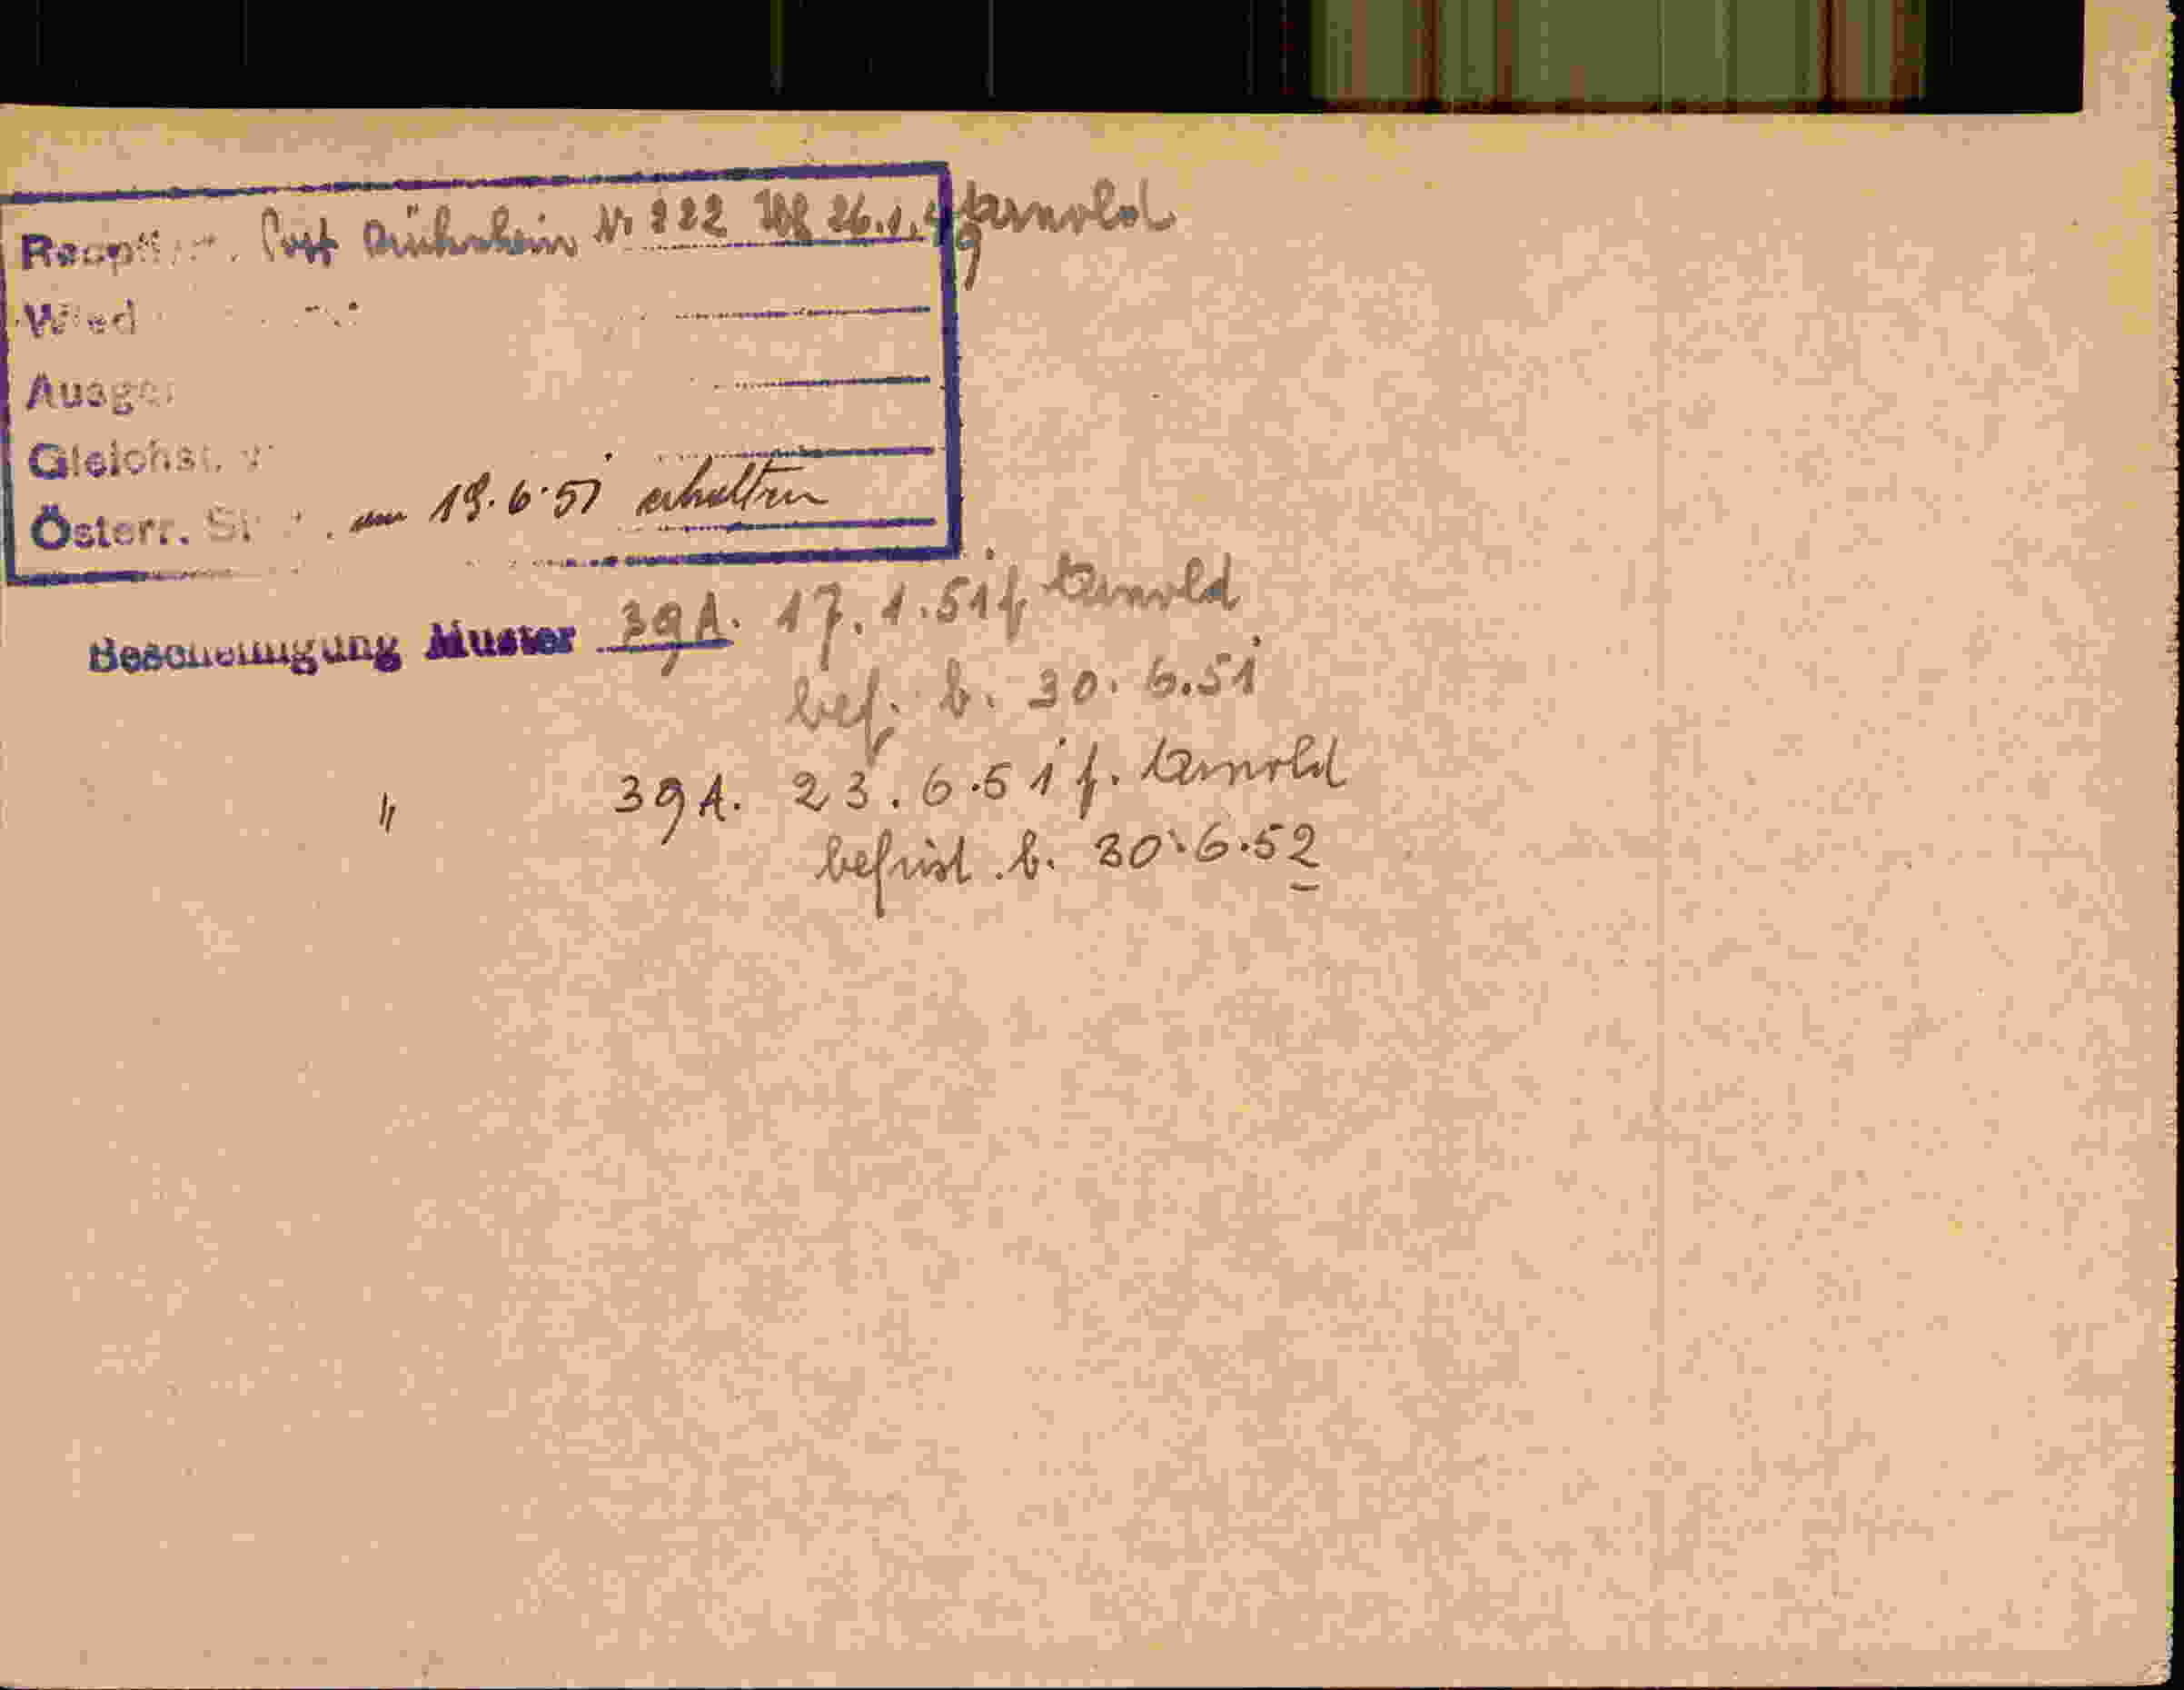 Post Dürrnheim Nr 222 26.1.49 Arnold
Wied
Ausge
Gleichst. v
Österr. St am 19.6.51 erhalten
Bescheinigung Muster 39A. 17.1.51 f Arnold
bef. b. 30.6.51
" 39A. 23.6.51 f. Arnold
befrist. b. 30.6.52